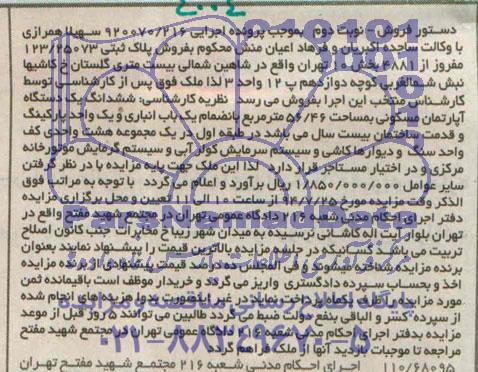 دستور فروش نوبت دوم بموجب پرونده اجرایی ۹۲۰۰۷۰/۲۱۶ سهیلا همرازی
با وکالت ساجده اکبریان و فرهاد اعیان منش محکوم بفروش پلاک ثبتی ۱۲۳/۲۵۰۷۳
مفروز از ۴۸۸۱ بخش تهران واقع در شاهین شمالی بیست متری گلستان خ کاشیها
نبش شمالغربی کوچه دوازدهم پ ۱۲ واحد ۳ لذا ملک فوق پس از کارشناسی توسط
کارشناس منتخب این اجرا بفروش می رسد نظریه کارشناسی: ششدانگ یک دستگاه
آپارتمان مسکونی بمساحت ۵۶/۴۶ مترمربع بانضمام یک باب انباری و یک واحد پارکینگ
و قدمت ساختمان بیست سال می باشد در طبقه اول در یک مجموعه هشت واحدی کف
واحد سنگ و دیوارها کاشی و سیستم سرمایش کولر آبی و سیستم گرمایش موتورخانه
مرکزی و در اختیار مستاجر قرار دارد لذا این ملک جهت پایه مزایده با در نظر گرفتن
سایر عوامل ۱/۸۵۰/۰۰۰/۰۰۰ ریال برآورد و اعلام می گردد با توجه به مراتب فوق
الذکر وقت مزایده مورخ ۹۴/۷/۲۵ از ساعت ۱۰ الی ۱۱ تعیین و محل برگزاری مزایده
دفتر اجرای احکام مدنی شعبه ۲۱۶ دادگاه عمومی تهران در مجتمع شهید مفتح واقع در
تهران بلوار آیت اله کاشانی نرسیده به میدان شهر زیبا خ مخابرات جنب کانون اصلاح
تربیت می باشد کسانیکه در جلسه مزایده بالاترین قیمت را پیشنهاد نمایند بعنوان
برنده مزایده شناخته میشوند و فی المجلس ده درصد قیمت پیشنهادی از برنده مزایده
اخذ و بحساب سپرده دادگستری واریز می گردد و خریدار موظف است باقیمانده ثمن
مورد مزایده را ظرف یکماه پرداخت نماید در غیر اینصورت بدوا هزینه های انجام شده
از سپرده کسر و الباقی بنفع دولت ضبط می گردد طالبین می توانند ۵ روز قبل از موعد
مزایده بدفتر اجرای احکام مدنی شعبه ۲۱۶ دادگاه عمومی تهران در مجتمع شهید مفتح
مراجعه تا موجبات بازدید آنها از ملک فراهم گردد
۱۱۰/۶۸۰۹۵ اجرای احکام مدنی شعبه ۲۱۶ مجتمع شهید مفتح تهران
۰۲۱-۸۸۳۴۹۶۷۰-۵